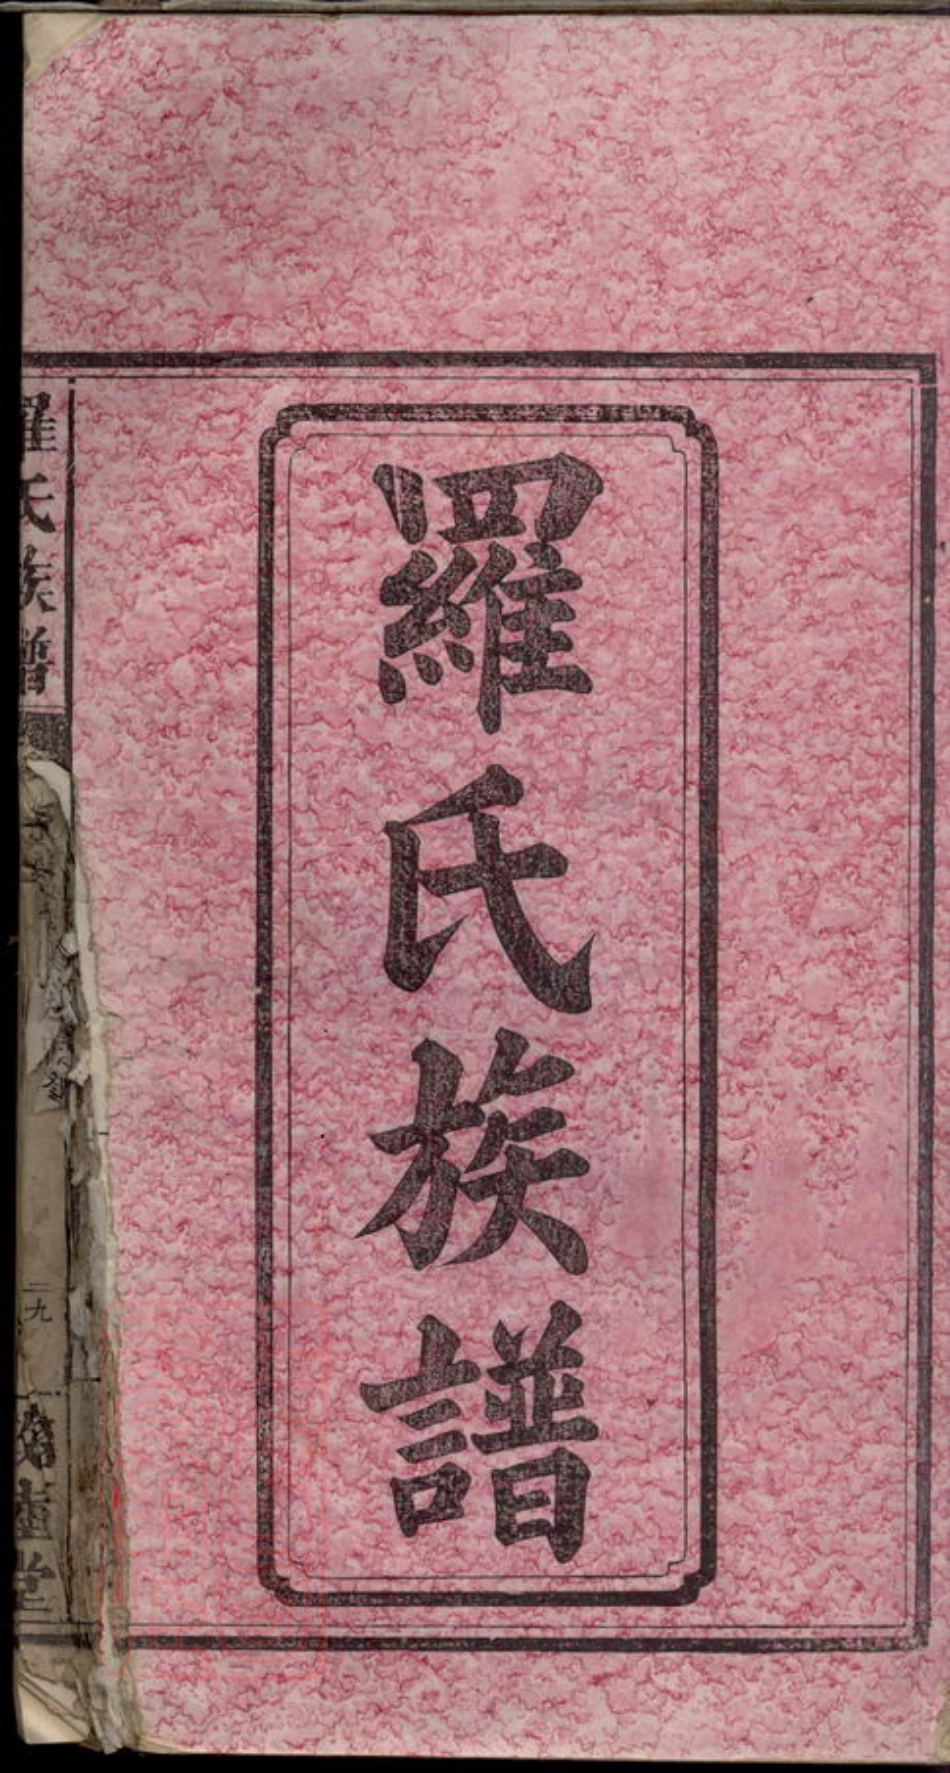 羅氏族譜
羅氏族譜
九
堂